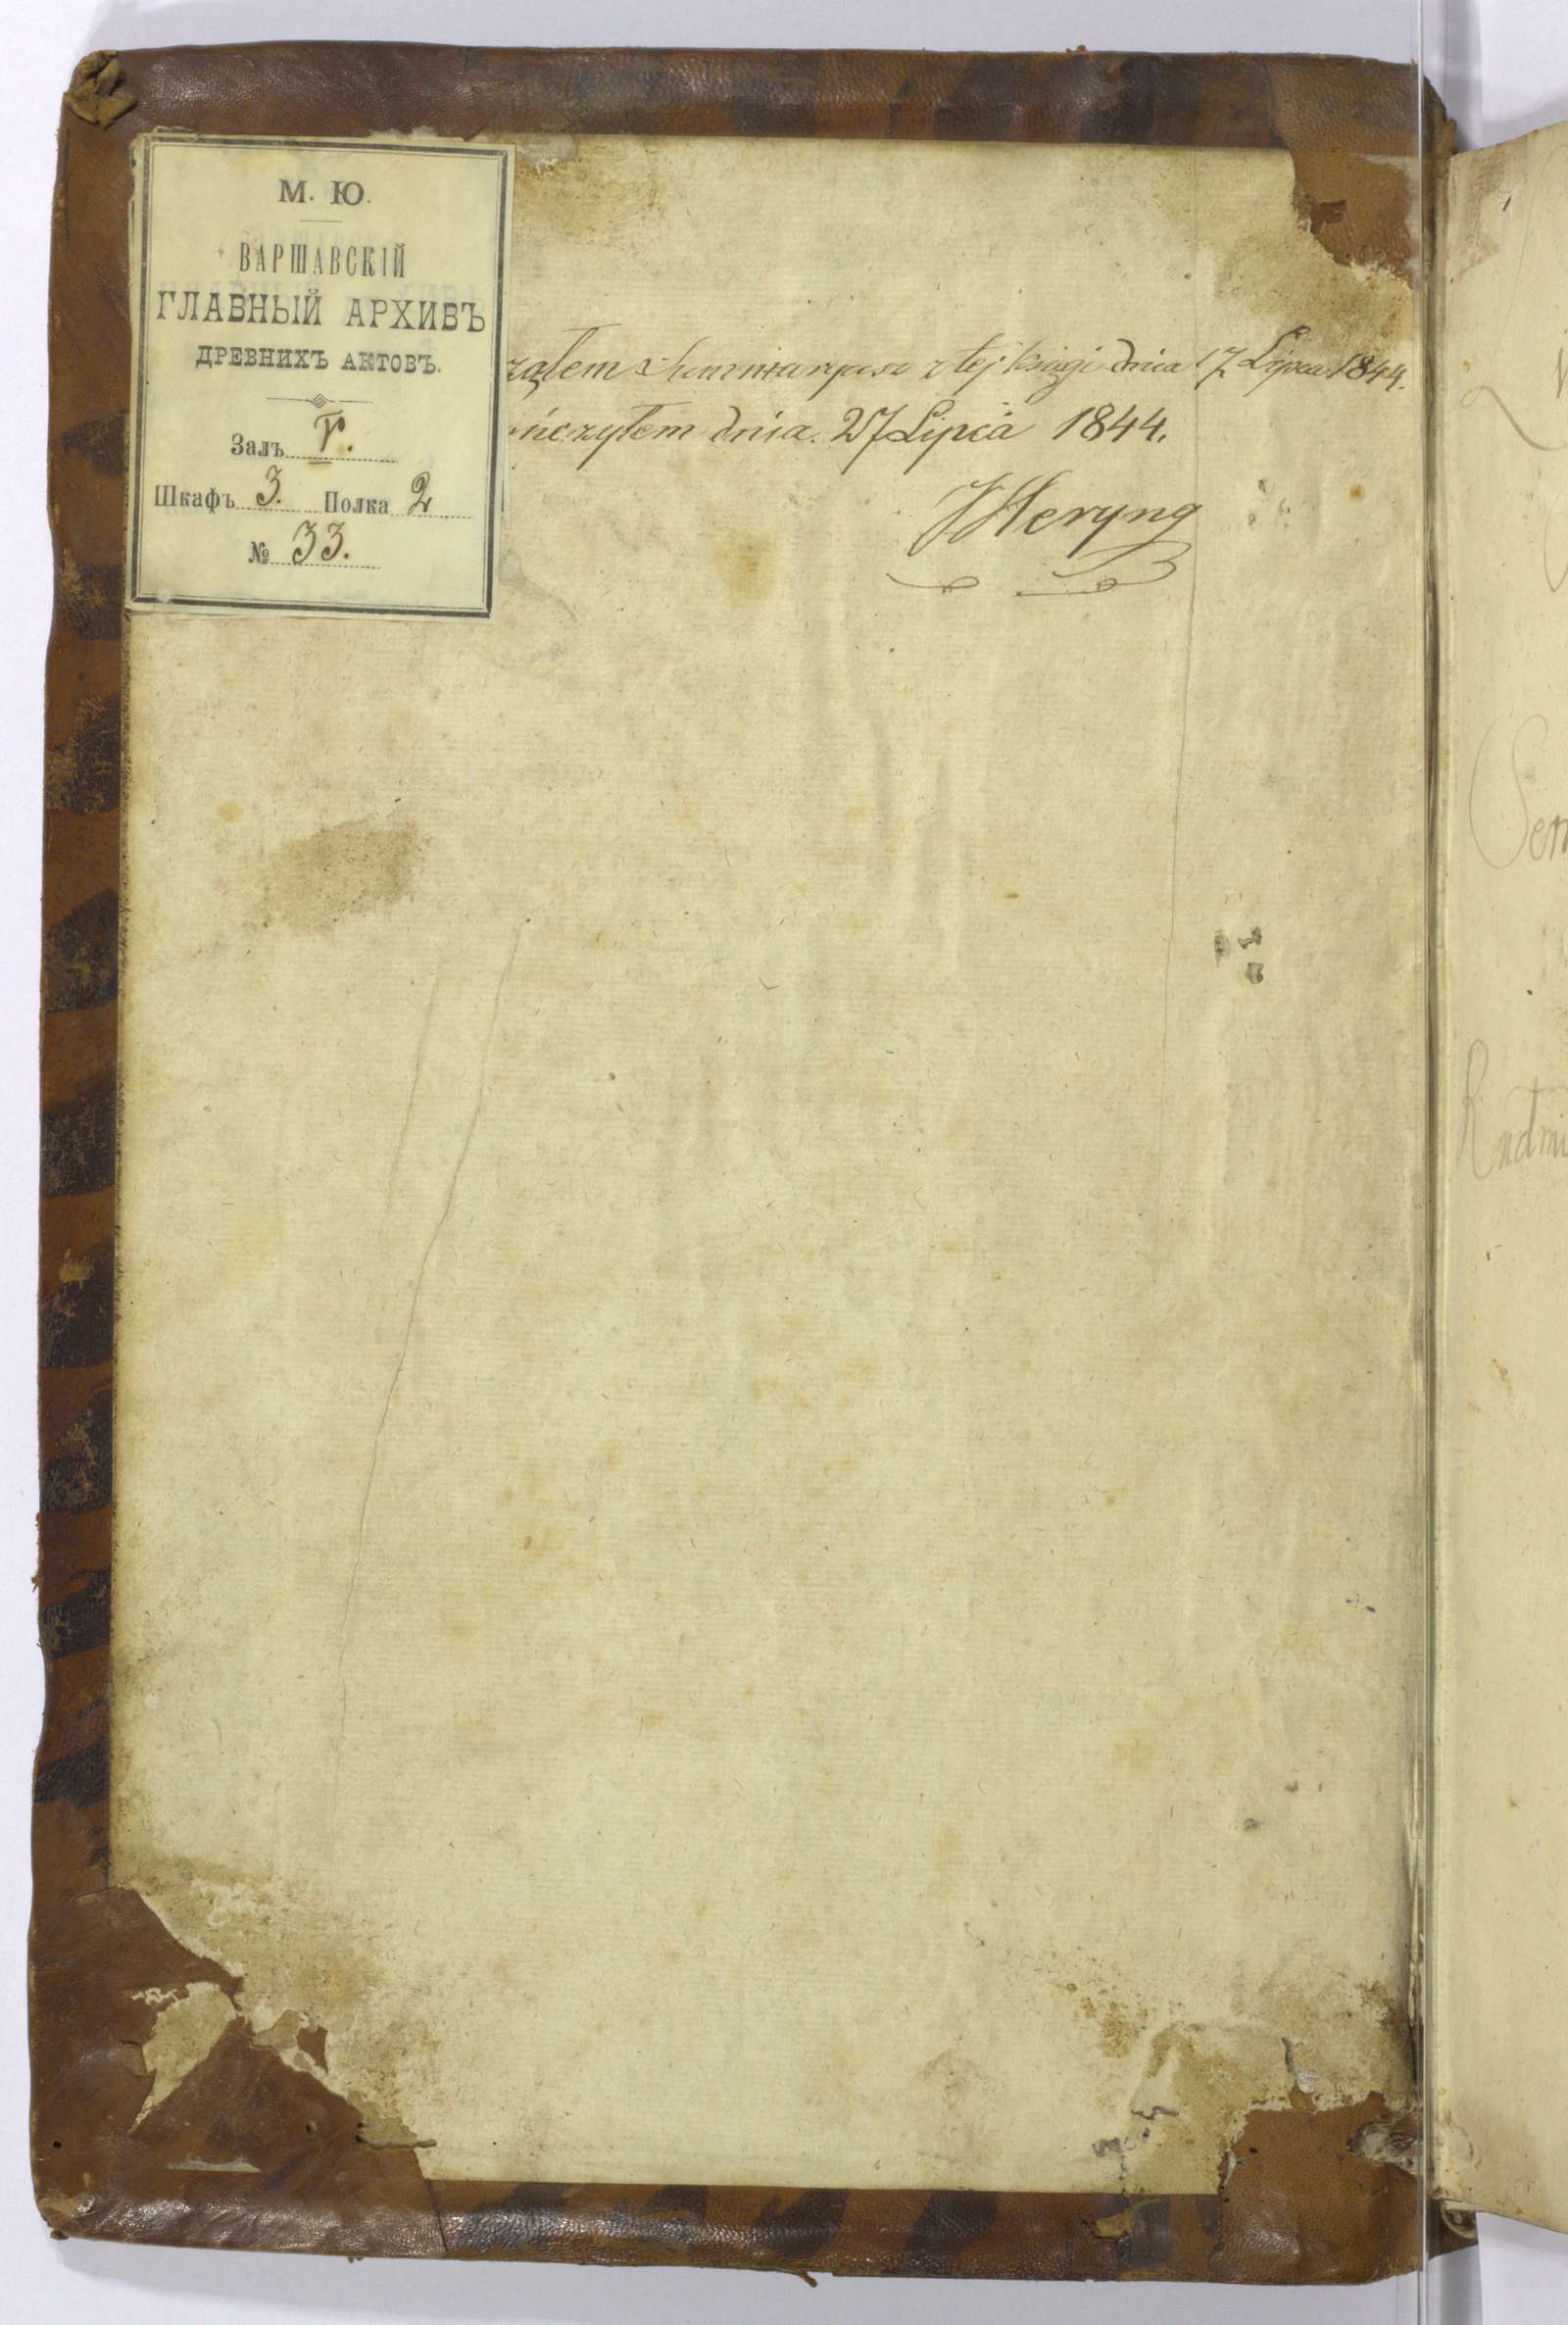 М. Ю.
ВАРШАВСКІЙ
ГЛАВНЫЙ АРХИВЪ
ДРЕВНИХЪ АКТОВЪ.
Залъ V.
Шкафъ 3. Полка 2
№ 33.
z tej księgi dnia 17 Lipca 1844.
ńczyłem dnia. 27 Lipca 1844.
JHeryng